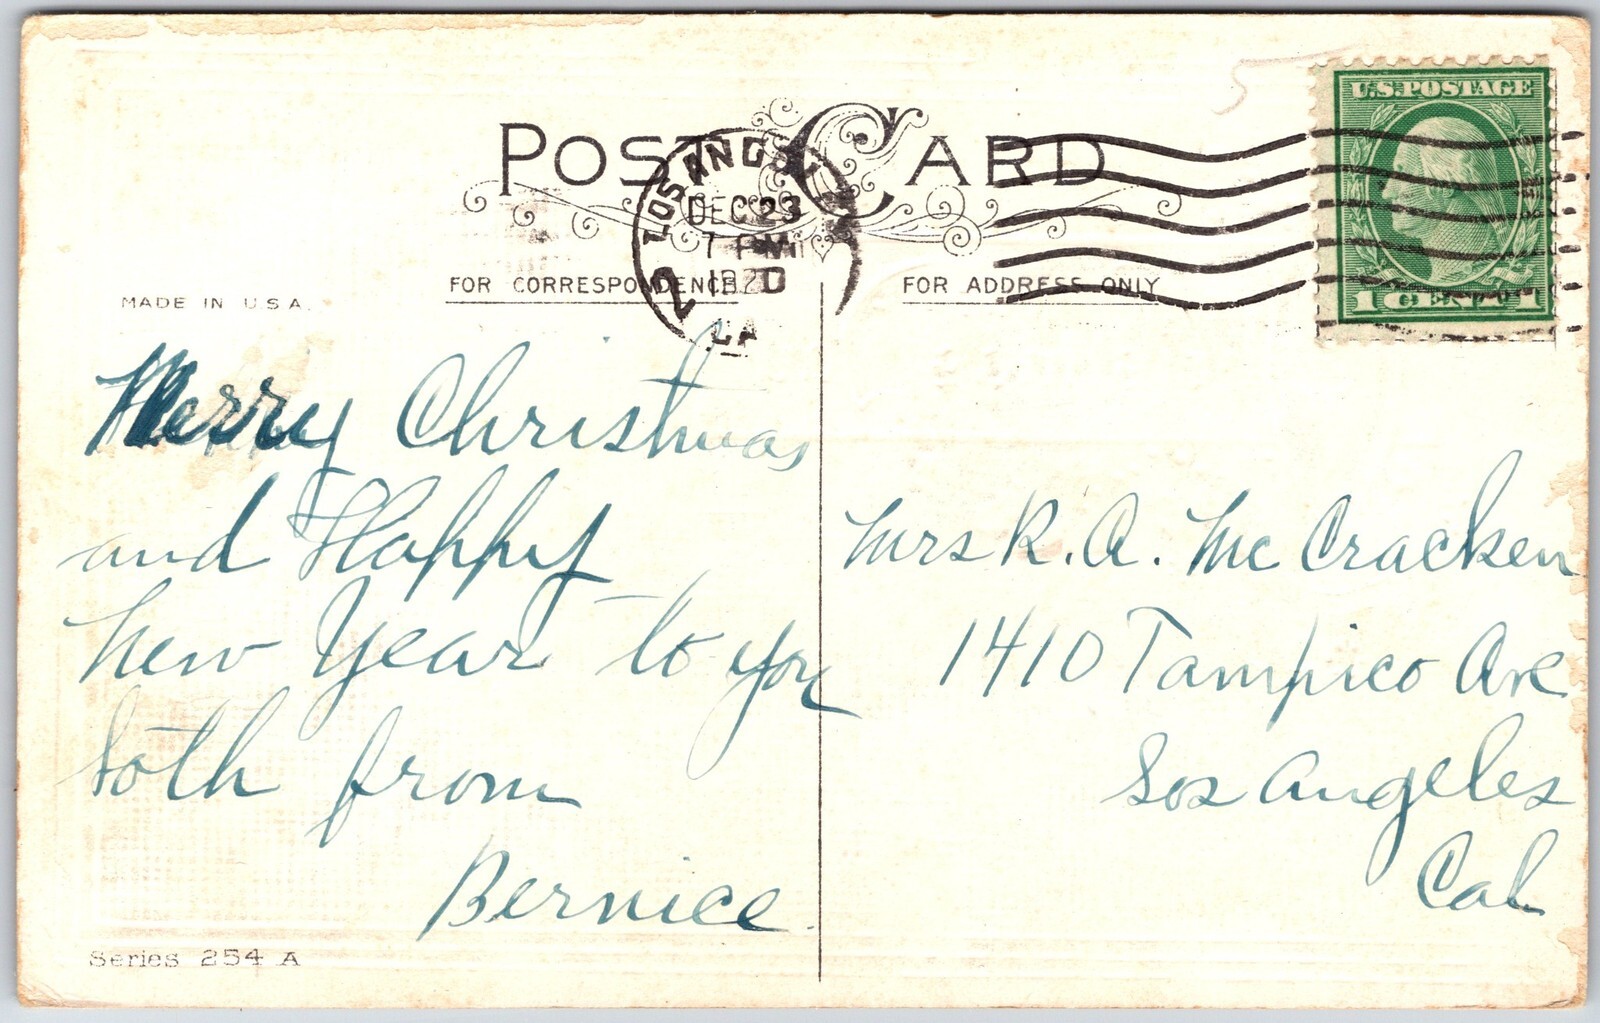 POST CARD
U.S. POSTAGE
1 CENT 1
LOS ANG
DEC 23
7 PM
1920
CA
MADE IN U.S.A.
FOR CORRESPONDENCE
FOR ADDRESS ONLY
Merry Christmas
and Happy
New Year to you
both from
Bernice
Mrs R. A. McCracken
1410 Tampico Ave
Los Angeles
Cal
Series 254 A